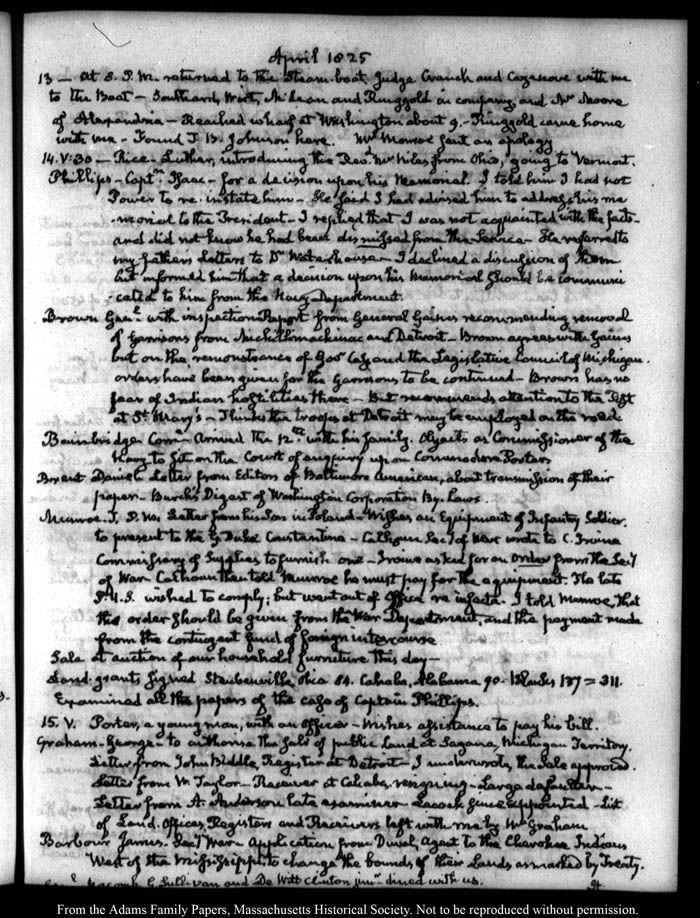 April 1825
13 — At 8. P.M. returned to the Steam-boat, Judge Cranch and Cazenove with me
to the Boat — Southard, Wirt, McLean and Ringgold in company and Mr Moore
of Alexandria — Reached wharf at Washington about 9. — Ringgold came home
with me — Found J. B. Johnson here. Mr Monroe sent an apology
14. V:30 — Rice — Luther, introducing the Revd Mr Niles from Ohio, going to Vermont.
Phillips — Captn Isaac — for a decision upon his Memorial. I told him I had not
Power to re-instate him — He said I had advised him to address his me
-morial to the President — I replied that I was not acquainted with the facts
and did not know he had been dismissed from the Service — He referred to
my father's Letters to Dr Waterhouse — I declined a discussion of them
but informed him that a decision upon his Memorial should be communi
-cated to him from the Navy Department.
Brown Genl with inspection Report from General Gaines recommending removal
of Garrisons from Michilimackinac and Detroit — Brown agrees with Gaines
but on the remonstrance of Govr Cass and the Legislative Council of Michigan.
orders have been given for the Garrisons to be continued — Brown has no
fear of Indian hostilities there — But recommends attention to the Post
at St Mary's — Thinks the troops at Detroit may be employed on the road.
Bainbridge Comre Arrived the 12th with his family. Objects as Commissioner of the
Navy to sit on the Court of enquiry upon Commodore Porter
Brent Daniel Letter from Editors of Baltimore American, about transmission of their
paper — Burch's Digest of Washington Corporation By-Laws.
Munroe. T. P. M. Letter from his Son in Poland — Wishes an Equipment of Infantry Soldier.
to present to the G. Duke Constantine — Calhoun Secy of War wrote to C. Irvine
Commissary of Supplies to furnish one — Irvine asked for an Order from the Secy
of War Calhoun then told Munroe he must pay for the equipment. The late
P. U.S. wished to comply; but went out of Office re infecta. I told Munroe, that
the order should be given from the War Department, and the payment made
from the contingent fund of foreign intercourse
Sale at auction of our household furniture this day —
Land-grants signed Steubenville, Ohio 84. Cahaba, Alabama 90. 137 = 311.
Examined all the papers of the case of Captain Phillips.
15. V. Porter, a young man, with an Officer — Wishes assistance to pay his bill.
Graham — George — to authorise the Sale of public Land at Michigan Territory.
Letter from John Biddle, Register at Detroit — I underwrote, the Sale approved.
Letter from Taylor — Receiver at Cahaba, resigning — Large defaulter —
Letter from A. Anderson late examiner — Lacock since appointed — List
of Land Offices, Registers and Receivers left with me by Mr Graham
Barbour James. Secy War — Application from Duval, Agent to the Cherokee Indians
West of the Mississippi to change the bounds of their Lands as marked by Treaty.
Macomb, E. Sullivan and De Witt Clinton junr dined with us.
From the Adams Family Papers, Massachusetts Historical Society. Not to be reproduced without permission.